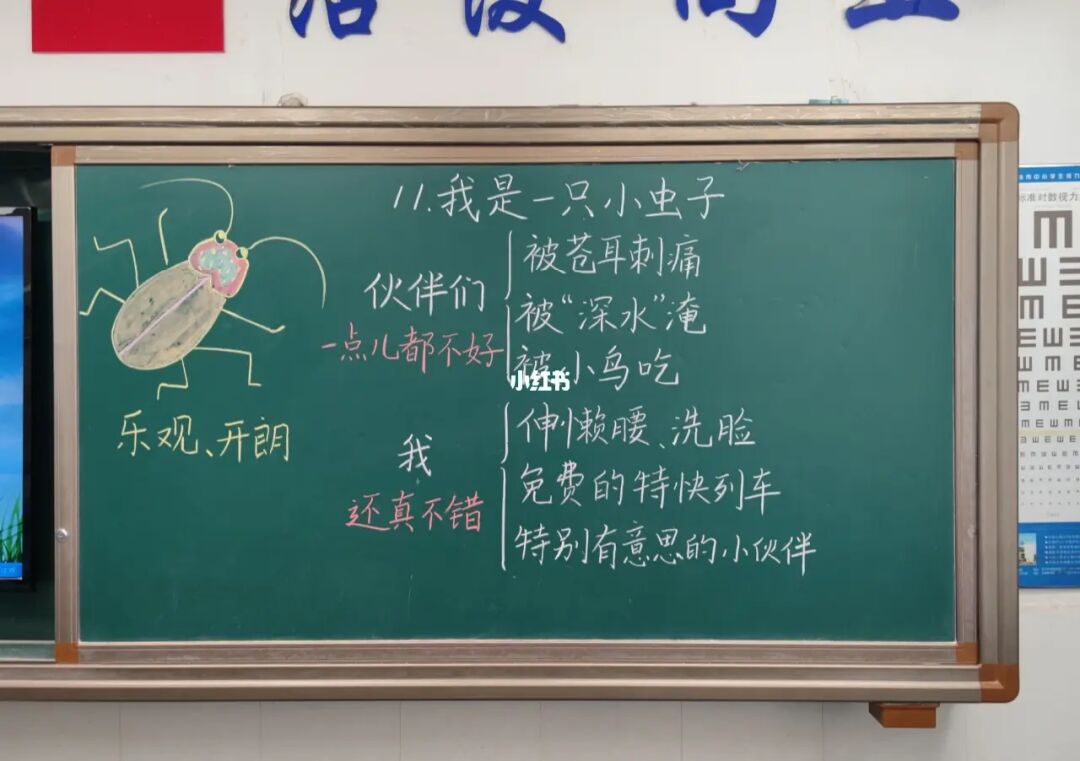 11.我是一只小虫子
伙伴们
一点儿都不好
被苍耳刺痛
被“深水”淹
被小鸟吃
我
还真不错
伸懒腰、洗脸
免费的特快列车
特别有意思的小伙伴
乐观、开朗
小红书
标准对数视力